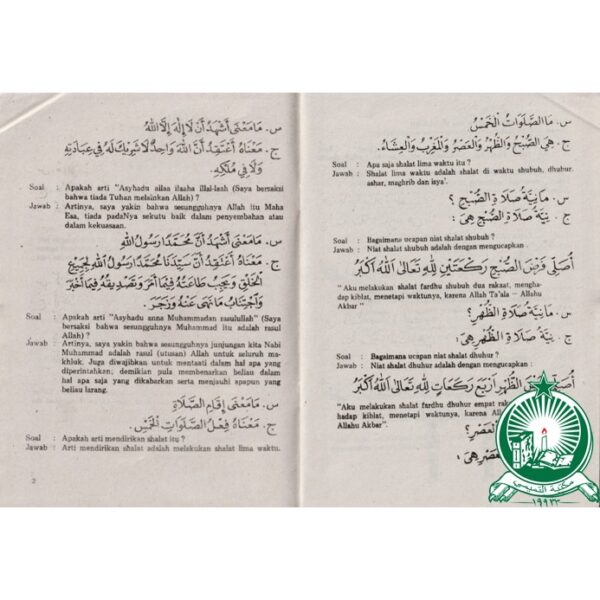 س. مَا مَعْنَى أَشْهَدُ أَنْ لَا إِلٰهَ إِلَّا اللهُ
ج. مَعْنَاهُ أَعْتَقِدُ أَنَّ اللهَ وَاحِدٌ لَا شَرِيْكَ لَهُ فِي عِبَادَتِهِ
وَلَا فِي مُلْكِهِ
Soal : Apakah arti "Asyhadu allaa ilaaha illal-laah (Saya bersaksi
bahwa tiada Tuhan melainkan Allah) ?
Jawab : Artinya, saya yakin bahwa sesungguhnya Allah itu Maha
Esa, tiada padaNya sekutu baik dalam penyembahan atau
dalam kekuasaan.
س. مَا مَعْنَى أَشْهَدُ أَنَّ مُحَمَّدًا رَسُوْلُ اللهِ
ج. مَعْنَاهُ أَعْتَقِدُ أَنَّ سَيِّدَنَا مُحَمَّدًا رَسُوْلُ اللهِ لِجَمِيْعِ
الْخَلْقِ وَيَجِبُ طَاعَتُهُ فِيْمَا أَمَرَ وَتَصْدِيْقُهُ فِيْمَا أَخْبَرَ
وَاجْتِنَابُ مَا نَهَى عَنْهُ وَزَجَرَ.
Soal : Apakah arti "Asyhadu anna Muhammadan rasulullah" (Saya
bersaksi bahwa sesungguhnya Muhammad itu adalah rasul
Allah) ?
Jawab : Artinya, saya yakin bahwa sesungguhnya junjungan kita Nabi
Muhammad adalah rasul (utusan) Allah untuk seluruh ma-
khluk. Juga diwajibkan untuk mentaati dalam hal apa yang
diperintahkan; demikian pula membenarkan beliau dalam
hal apa saja yang dikabarkan serta menjauhi apapun yang
beliau larang.
س. مَا مَعْنَى إِقَامِ الصَّلَاةِ
ج. مَعْنَاهُ فِعْلُ الصَّلَوَاتِ الْخَمْسِ.
Soal : Apakah arti mendirikan shalat itu ?
Jawab : Arti mendirikan shalat adalah melakukan shalat lima waktu.
2
س. مَا الصَّلَوَاتُ الْخَمْسُ
ج. هِيَ الصُّبْحُ وَالظُّهْرُ وَالْعَصْرُ وَالْمَغْرِبُ وَالْعِشَاءُ.
Soal : Apa saja shalat lima waktu itu ?
Jawab : Shalat lima waktu adalah shalat di waktu shubuh, dhuhur.
ashar, maghrib dan isya'.
س. مَا نِيَّةُ صَلَاةِ الصُّبْحِ ؟
ج. نِيَّةُ صَلَاةِ الصُّبْحِ هِيَ :
Soal : Bagaimana ucapan niat shalat shubuh ?
Jawab : Niat shalat shubuh adalah dengan mengucapkan.
أُصَلِّى فَرْضَ الصُّبْحِ رَكْعَتَيْنِ لِلّٰهِ تَعَالَى اَللهُ أَكْبَرُ
"Aku melakukan shalat fardhu shubuh dua rakaat, mengha-
dap kiblat, menetapi waktunya, karena Allah Ta'ala – Allahu
Akbar"
س. مَا نِيَّةُ صَلَاةِ الظُّهْرِ؟
ج. نِيَّةُ صَلَاةِ الظُّهْرِ هِيَ:
Soal : Bagaimana ucapan niat shalat dhuhur ?
Jawab : Niat shalat dhuhur adalah dengan mengucapkan:
أُصَلِّى الظُّهْرِ أَرْبَعَ رَكَعَاتٍ لِلّٰهِ تَعَالَى اَللهُ أَكْبَرُ
"Aku melakukan shalat fardhu dhuhur empat
hadap kiblat, menetapi waktunya, karena
Allahu Akbar".
الْعَصْرِ؟
هِيَ :
مكتبة التميمي